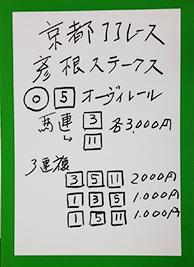 京都11レース
彦根ステークス
◎ 5 オーヴィレール
馬連 3 各3,000円
↳ 11
3連複
3 5 11 2000円
1 3 5 1,000円
1 5 11 1,000円